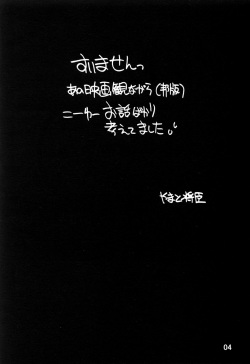 すいませんっ
あの映画観ながら(劇版)
こーゆーお話ばかり
考えてました。
やまと将臣
04